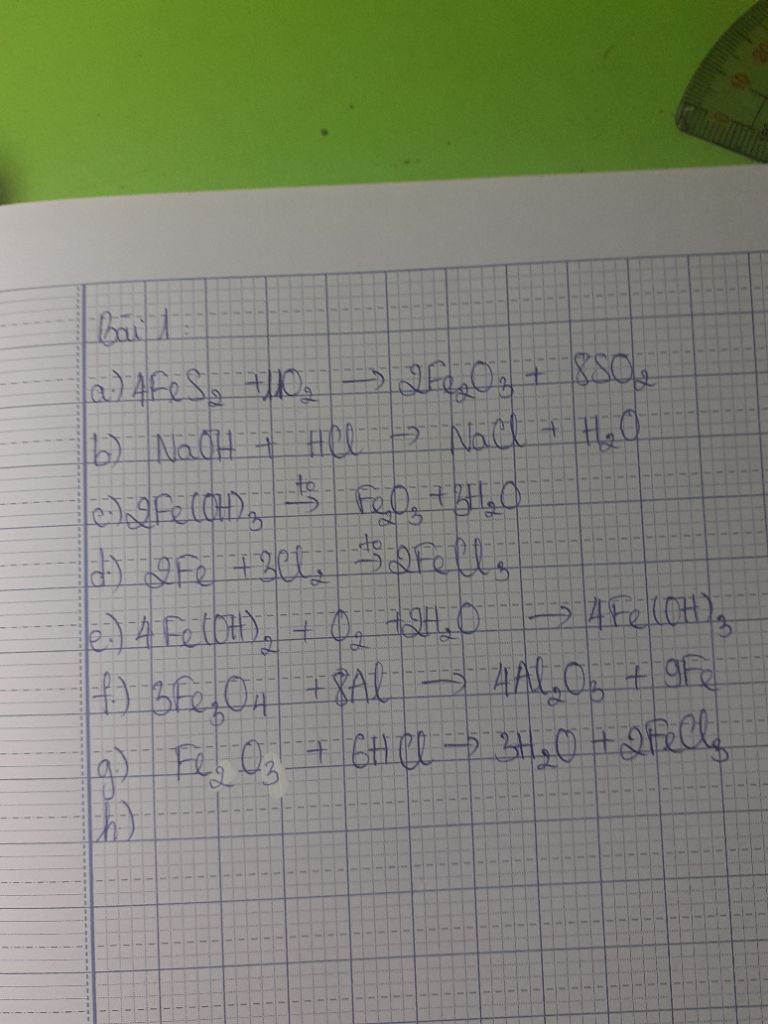 Bài 1:
a) 4FeS₂ + 11O₂ → 2Fe₂O₃ + 8SO₂
b) NaOH + HCl → NaCl + H₂O
c) 2Fe(OH)₃ $\xrightarrow{to}$ Fe₂O₃ + 3H₂O
d) 2Fe + 3Cl₂ $\xrightarrow{to}$ 2FeCl₃
e) 4Fe(OH)₂ + O₂ + 2H₂O → 4Fe(OH)₃
f) 3Fe₃O₄ + 8Al → 4Al₂O₃ + 9Fe
g) Fe₂O₃ + 6HCl → 3H₂O + 2FeCl₃
h)